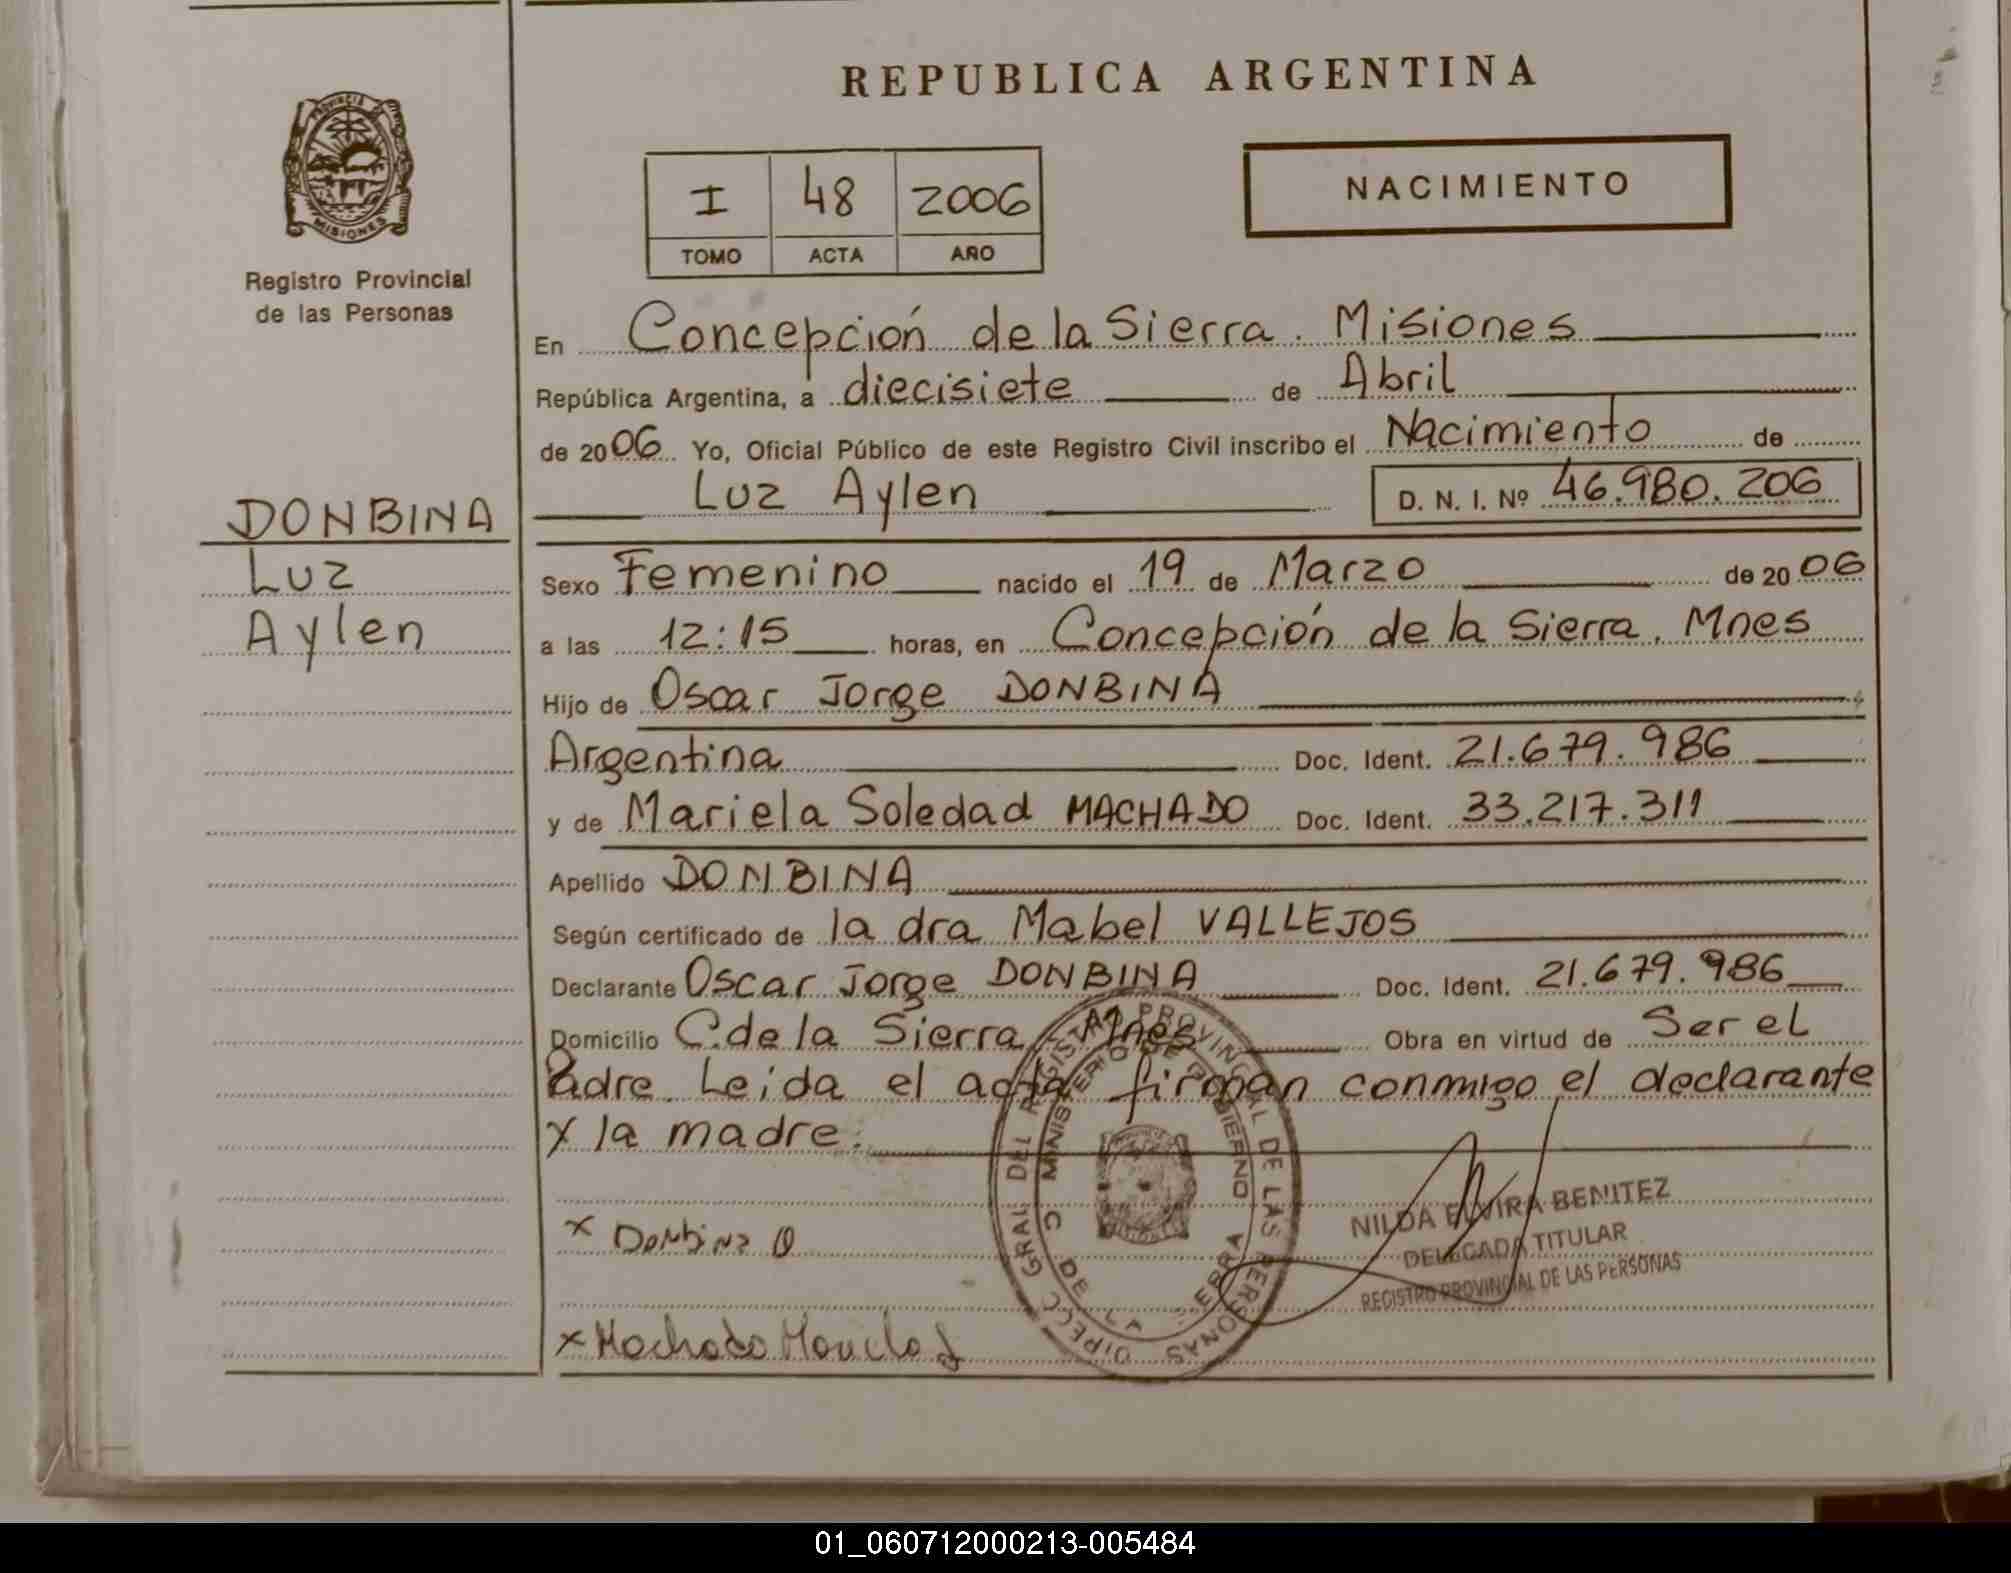 REPUBLICA ARGENTINA
PROVINCIA DE
MISIONES
Registro Provincial
de las Personas
I 48 2006
TOMO ACTA AÑO
NACIMIENTO
En Concepción de la Sierra. Misiones
República Argentina, a diecisiete de Abril
de 2006 Yo, Oficial Público de este Registro Civil inscribo el Nacimiento de
Luz Aylen D. N. I. Nº 46.980.206
DONBINA
Luz
Aylen
Sexo Femenino nacido el 19 de Marzo de 2006
a las 12:15 horas, en Concepción de la Sierra. Mnes
Hijo de Oscar Jorge DONBINA
Argentina Doc. Ident. 21.679.986
y de Mariela Soledad MACHADO Doc. Ident. 33.217.311
Apellido DONBINA
Según certificado de la dra Mabel VALLEJOS
Declarante Oscar Jorge DONBINA Doc. Ident. 21.679.986
Domicilio C. de la Sierra Mnes Obra en virtud de Ser el
Padre. Leida el acta firman conmigo el declarante
y la madre.
DIRECC GRAL DEL REGISTRO PROVINCIAL DE LAS PERSONAS
MINISTERIO DE GOBIERNO
C DE LA SIERRA
x Donbina O
NILDA ELVIRA BENITEZ
DELEGADA TITULAR
REGISTRO PROVINCIAL DE LAS PERSONAS
x Machado Mariela S
01_060712000213-005484